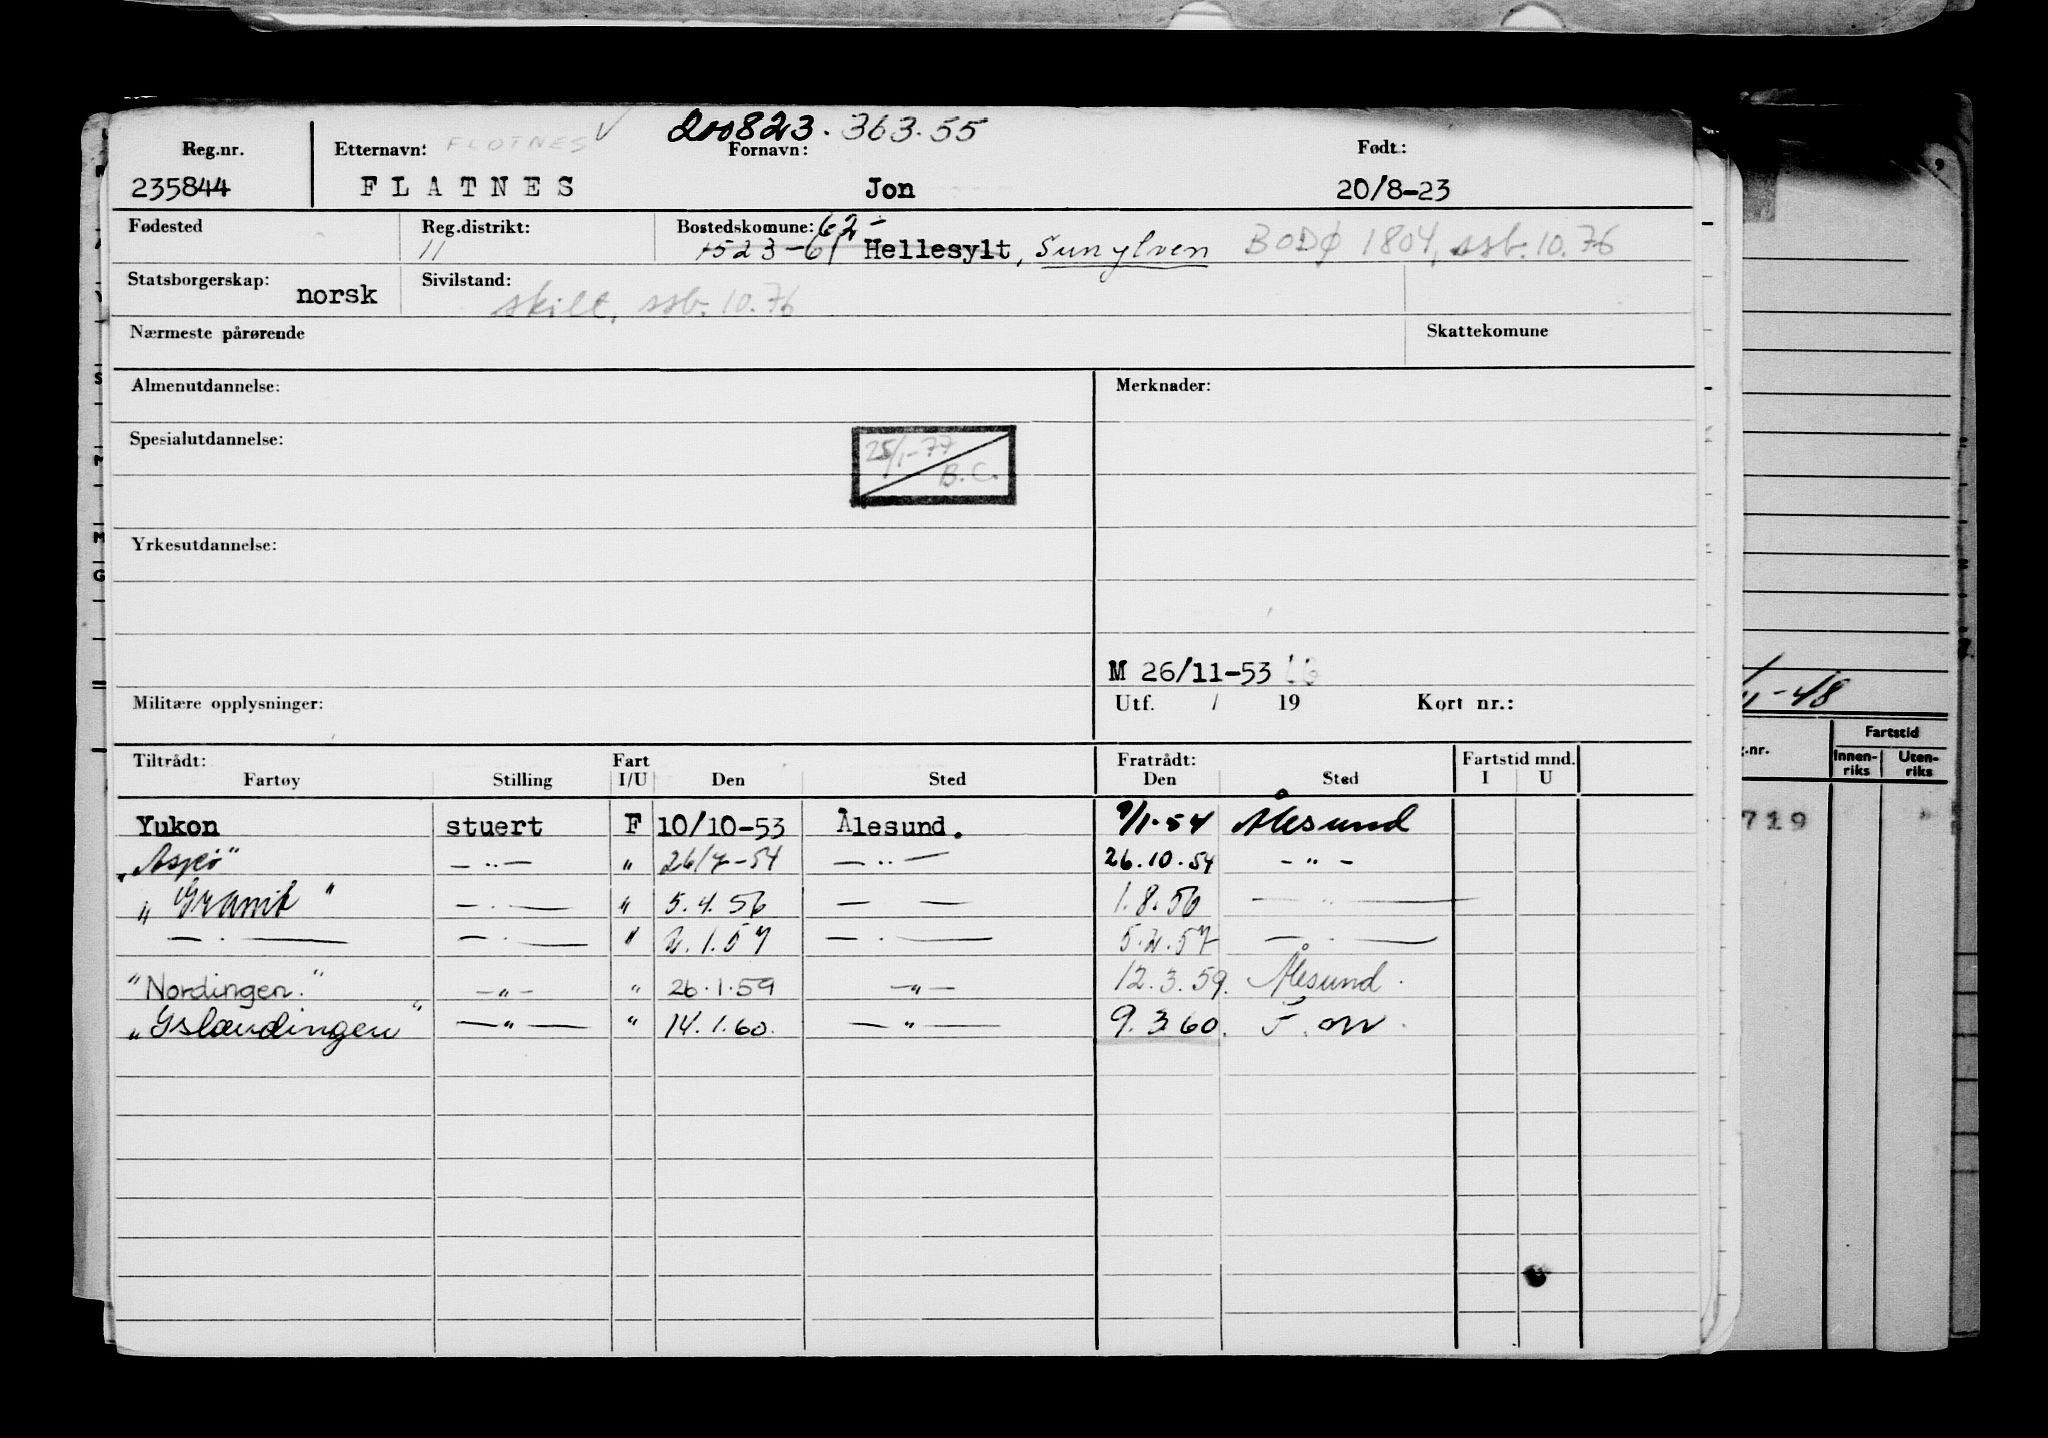 200823. 363.55
Reg.nr. Etternavn: FLOTNES Fornavn: Født:
235844 FLATNES Jon 20/8-23
Fødested Reg.distrikt: Bostedskomune: 62-
11 1523-61 Hellesylt, Sunylven BODØ 1804, ssb. 10.76
Statsborgerskap: Sivilstand:
norsk skilt, ssb. 10.76
Nærmeste pårørende Skattekomune
Almenutdannelse: Merknader:
Spesialutdannelse: 25/1-77
B.C.
Yrkesutdannelse:
M 26/11-53
Militære opplysninger: Utf. / 19 Kort nr.:
Tiltrådt: Fart Fratrådt: Fartstid mnd.
Fartøy Stilling I/U Den Sted Den Sted I U
Yukon stuert F 10/10-53 Ålesund. 9/1-54 Ålesund
"Aspö" — " — " 26/7-54 — " — 26.10.54 - " -
"Granit" — . — " 5.4.56 — — 1.8.56 — " —
— . — — . — " 2.1.57 — . — 5.2.57 — . —
"Nordingen." — " — " 26.1.59 — " — 12.3.59. Ålesund.
"Islændingen" — " — " 14.1.60. — " — 9.3.60.
1/11-48
g.nr. Fartstid
Innen-riks Uten-riks
719